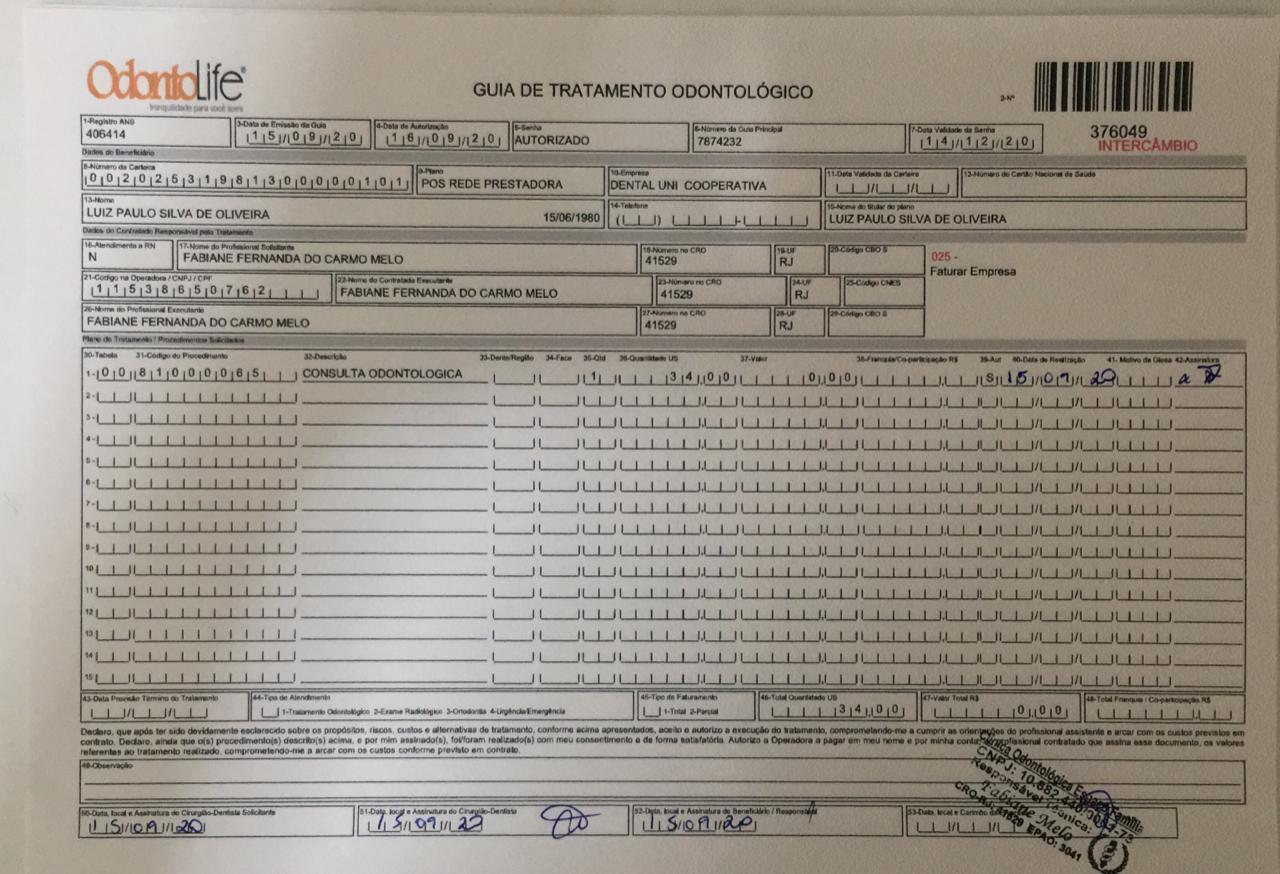 OdontoLife®
tranquilidade para você sorrir
GUIA DE TRATAMENTO ODONTOLÓGICO
2-Nº
376049
INTERCÂMBIO
1-Registro ANS 3-Data de Emissão da Guia 4-Data de Autorização 5-Senha 6-Número da Guia Principal 7-Data Validade da Senha
406414 15/09/20 16/09/20 AUTORIZADO 7874232 14/12/20
Dados do Beneficiário
8-Número da Carteira 9-Plano 10-Empresa 11-Data Validade da Carteira 12-Número do Cartão Nacional de Saúde
00202531981300000101 POS REDE PRESTADORA DENTAL UNI COOPERATIVA
13-Nome 14-Telefone 15-Nome do titular do plano
LUIZ PAULO SILVA DE OLIVEIRA 15/06/1980 LUIZ PAULO SILVA DE OLIVEIRA
Dados do Contratado Responsável pelo Tratamento
16-Atendimento a RN 17-Nome do Profissional Solicitante 18-Número no CRO 19-UF 20-Código CBO S
N FABIANE FERNANDA DO CARMO MELO 41529 RJ
025 -
Faturar Empresa
21-Código na Operadora / CNPJ / CPF 22-Nome do Contratado Executante 23-Número no CRO 24-UF 25-Código CNES
11538650762 FABIANE FERNANDA DO CARMO MELO 41529 RJ
26-Nome do Profissional Executante 27-Número no CRO 28-UF 29-Código CBO S
FABIANE FERNANDA DO CARMO MELO 41529 RJ
Plano de Tratamento / Procedimentos Solicitados
30-Tabela 31-Código do Procedimento 32-Descrição 33-Dente/Região 34-Face 35-Qtd 36-Quantidade US 37-Valor 38-Franquia/Co-participação R$ 39-Aut 40-Data de Realização 41- Motivo da Glosa 42-Assinatura
1- 00 81000065 CONSULTA ODONTOLOGICA 1 34,00 0,00 S 15/09/20
2-
3-
4-
5-
6-
7-
8-
9-
10
11
12
13
14
15
43-Data Previsão Término do Tratamento 44-Tipo de Atendimento 45-Tipo de Faturamento 46-Total Quantidade US 47-Valor Total R$ 48-Total Franquia / Co-participação R$
1-Tratamento Odontológico 2-Exame Radiológico 3-Ortodontia 4-Urgência/Emergência 1-Total 2-Parcial 34,00 0,00
Declaro, que após ter sido devidamente esclarecido sobre os propósitos, riscos, custos e alternativas de tratamento, conforme acima apresentados, aceito e autorizo a execução do tratamento, comprometendo-me a cumprir as orientações do profissional assistente e arcar com os custos previstos em
contrato. Declaro, ainda que o(s) procedimento(s) descrito(s) acima, e por mim assinado(s), foi/foram realizado(s) com meu consentimento e de forma satisfatória. Autorizo a Operadora a pagar em meu nome e por minha conta, ao profissional contratado que assina esse documento, os valores
referentes ao tratamento realizado, comprometendo-me a arcar com os custos conforme previsto em contrato.
49-Observação
50-Data, local e Assinatura do Cirurgião-Dentista Solicitante 51-Data, local e Assinatura do Cirurgião-Dentista 52-Data, local e Assinatura do Beneficiário / Responsável 53-Data, local e Carimbo da
15/09/20 15/09/20 15/09/20
Clínica Odontológica Família
CNPJ: 10.882.
Responsável Técnica:
Fabiane Melo
CRO-RJ: 41529 EPAO: 3041